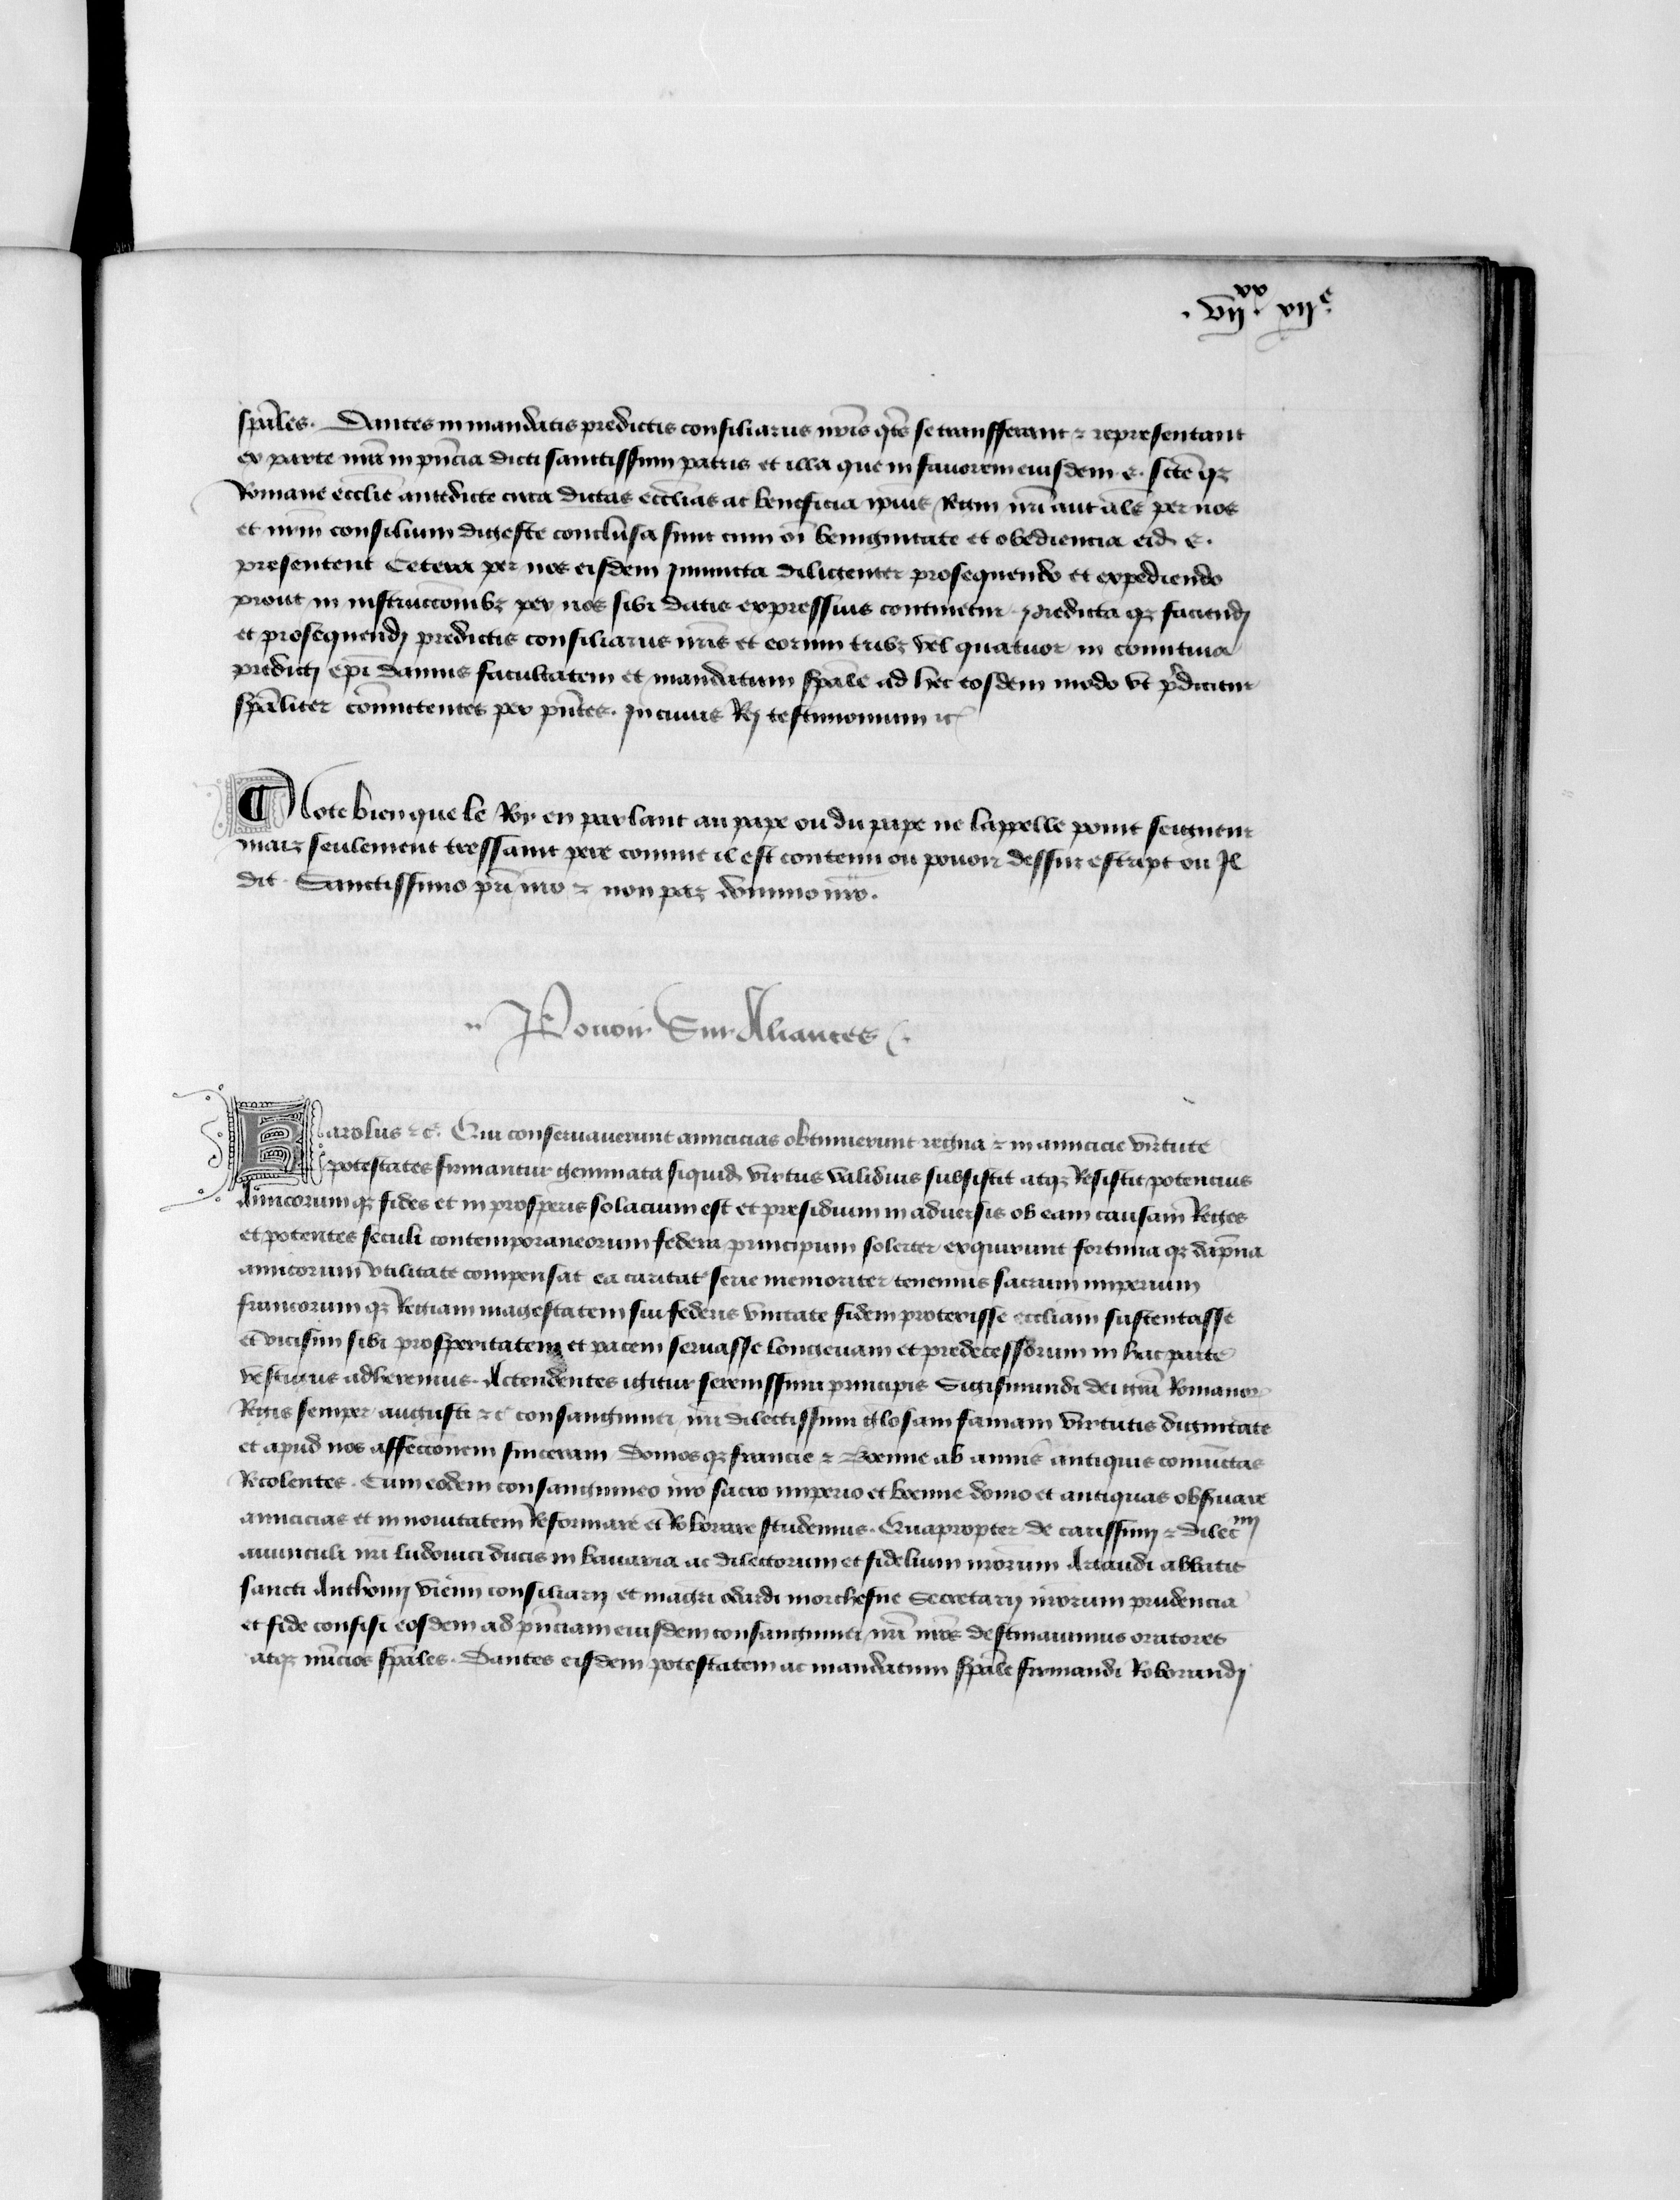 . vijˣˣ. xijᵉ.
spãles. Dantes in mandatis predictis consiliariis nr̃is qr̃es se transfferant ⁊ representant
ex parte nr̃a in pñcia dicti sanctissimi patris et illa que in favorem eiusdem e. scẽ qȝ
Romane eccl̃ie antedicte circa dictas eccl̃ias ac beneficia ipsius Regni nr̃i aut al̃s per nos
et nr̃m consilium digeste conclusa sunt cum õi benignitate et obediencia eid. e.
presentent Cetera per nos eisdem Iniuncta diligenter prosequendo et expediendo
prout in instruccõnibȝ per nos sibi datis expressius continetur. predicta qȝ faciendj
et prosequendj predictis consiliariis nr̃is et eorum tribȝ vel quatuor in comitiva
predictj ep̃i damus facultatem et mandatum spãle ad hec eosdem modo vt p̃dicitur
spãliter com̃ittentes per pñtes. In cuius Rej testimonium ⁊c̃
Note bien que le Roy en parlant au pape ou du pape ne lappelle point seigneur
maiz seulement tressaint pere comme il est contenu ou povoir dessuz escript ou Il
dit. Sanctissimo pr̃i nr̃o ⁊ non paz domino nr̃o.
Povoir Sur Aliances
Karolus ⁊c̃. Qui conservaverunt amicicias obtinuerunt regna ⁊ in amicicie virtute
potestates firmantur geminata siquid. virtus validius subsistit atqȝ Resistit potencius
Amicorum qȝ fides et in prosperis solacium est et presidium in adversis ob eam causam Reges
et potentes seculi contemporaneorum federa principum solerter exquirunt fortuna qȝ dãpna
amicorum vtilitate compensat ea caritat serie memoriter tenemus sacrum imperium
francorum qȝ Regiam magestatem sui federis vnitate fidem protexisse eccl̃iam sustentasse
et vicissim sibi prosperitatem et pacem servasse longevam et predecessorum in hac parte
vestigiis adheremus. Actendentes igitur serenissimi principis Sigismundi dei grã Romanor
Regis semper augusti ⁊c̃ consanguinei nr̃i dilectissimi gl̃osam famam virtutis dignitate
et apud nos affectionem sinceram Domos qȝ francie ⁊ Boeme ab annis antiquis coniunctas
Recolentes. Cum eodem consanguineo nr̃o sacro imperio et boeme domo et antiquas obs̃uare
amicicias et in novitatem Reformare et Roborare studemus. Quapropter de carissimj ⁊ dilecᵐʲ
avunculi nr̃i ludovici ducis in bavaria ac dilectorum et fidelium nr̃orum Artaudi abbatis
sancti Anthonij vieñn consiliarij et magr̃i odardi morchesne Secretarij nr̃orum prudencia
et fide confisi eosdem ad pñciam eiusdem consanguinei nr̃i nr̃os destinavimus oratores
atqȝ nũcios spãles. Dantes eisdem potestatem ac mandatum spãle firmandi Roborandj